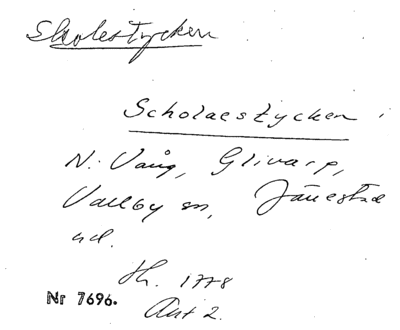 Skolestycken
Scholaestycken i
N. Vång, Glivarp,
Vallby sn, Jänestad
hd.
Th. 1778
Akt 2.
Nr 7696.